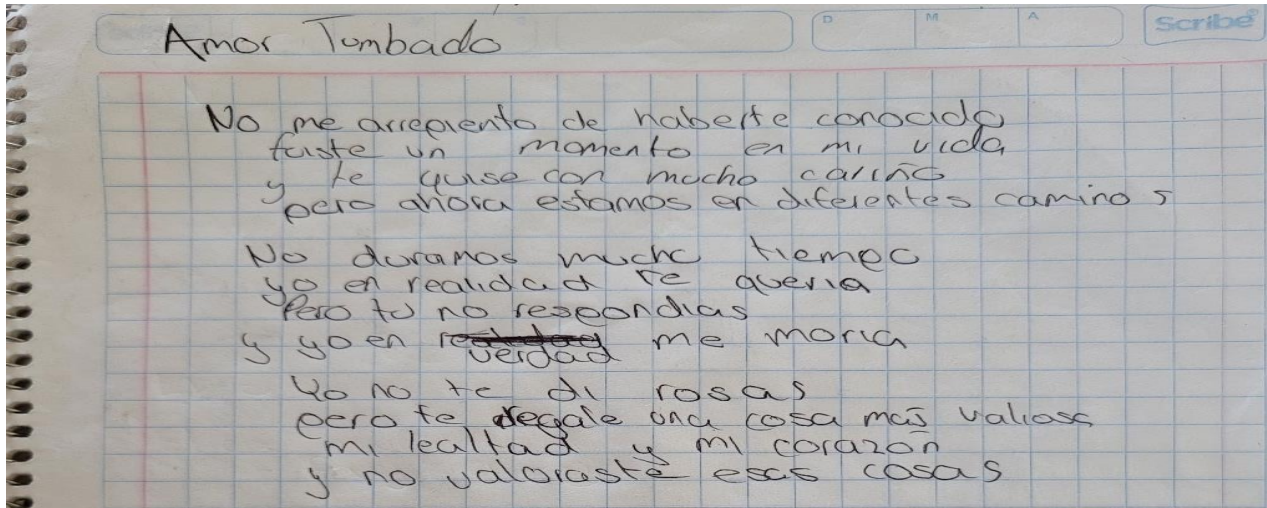 Amor Tumbado
D M A
Scribe
No me arrepiento de haberte conocido
fuiste un momento en mi vida
y te quise con mucho cariño
pero ahora estamos en diferentes caminos
No duramos mucho tiempo
yo en realidad te queria
Pero tu no respondias
y yo en verdad me moria
Yo no te di rosas
pero te regale una cosa mas valiosa
mi lealtad y mi corazon
y no valoraste esas cosas